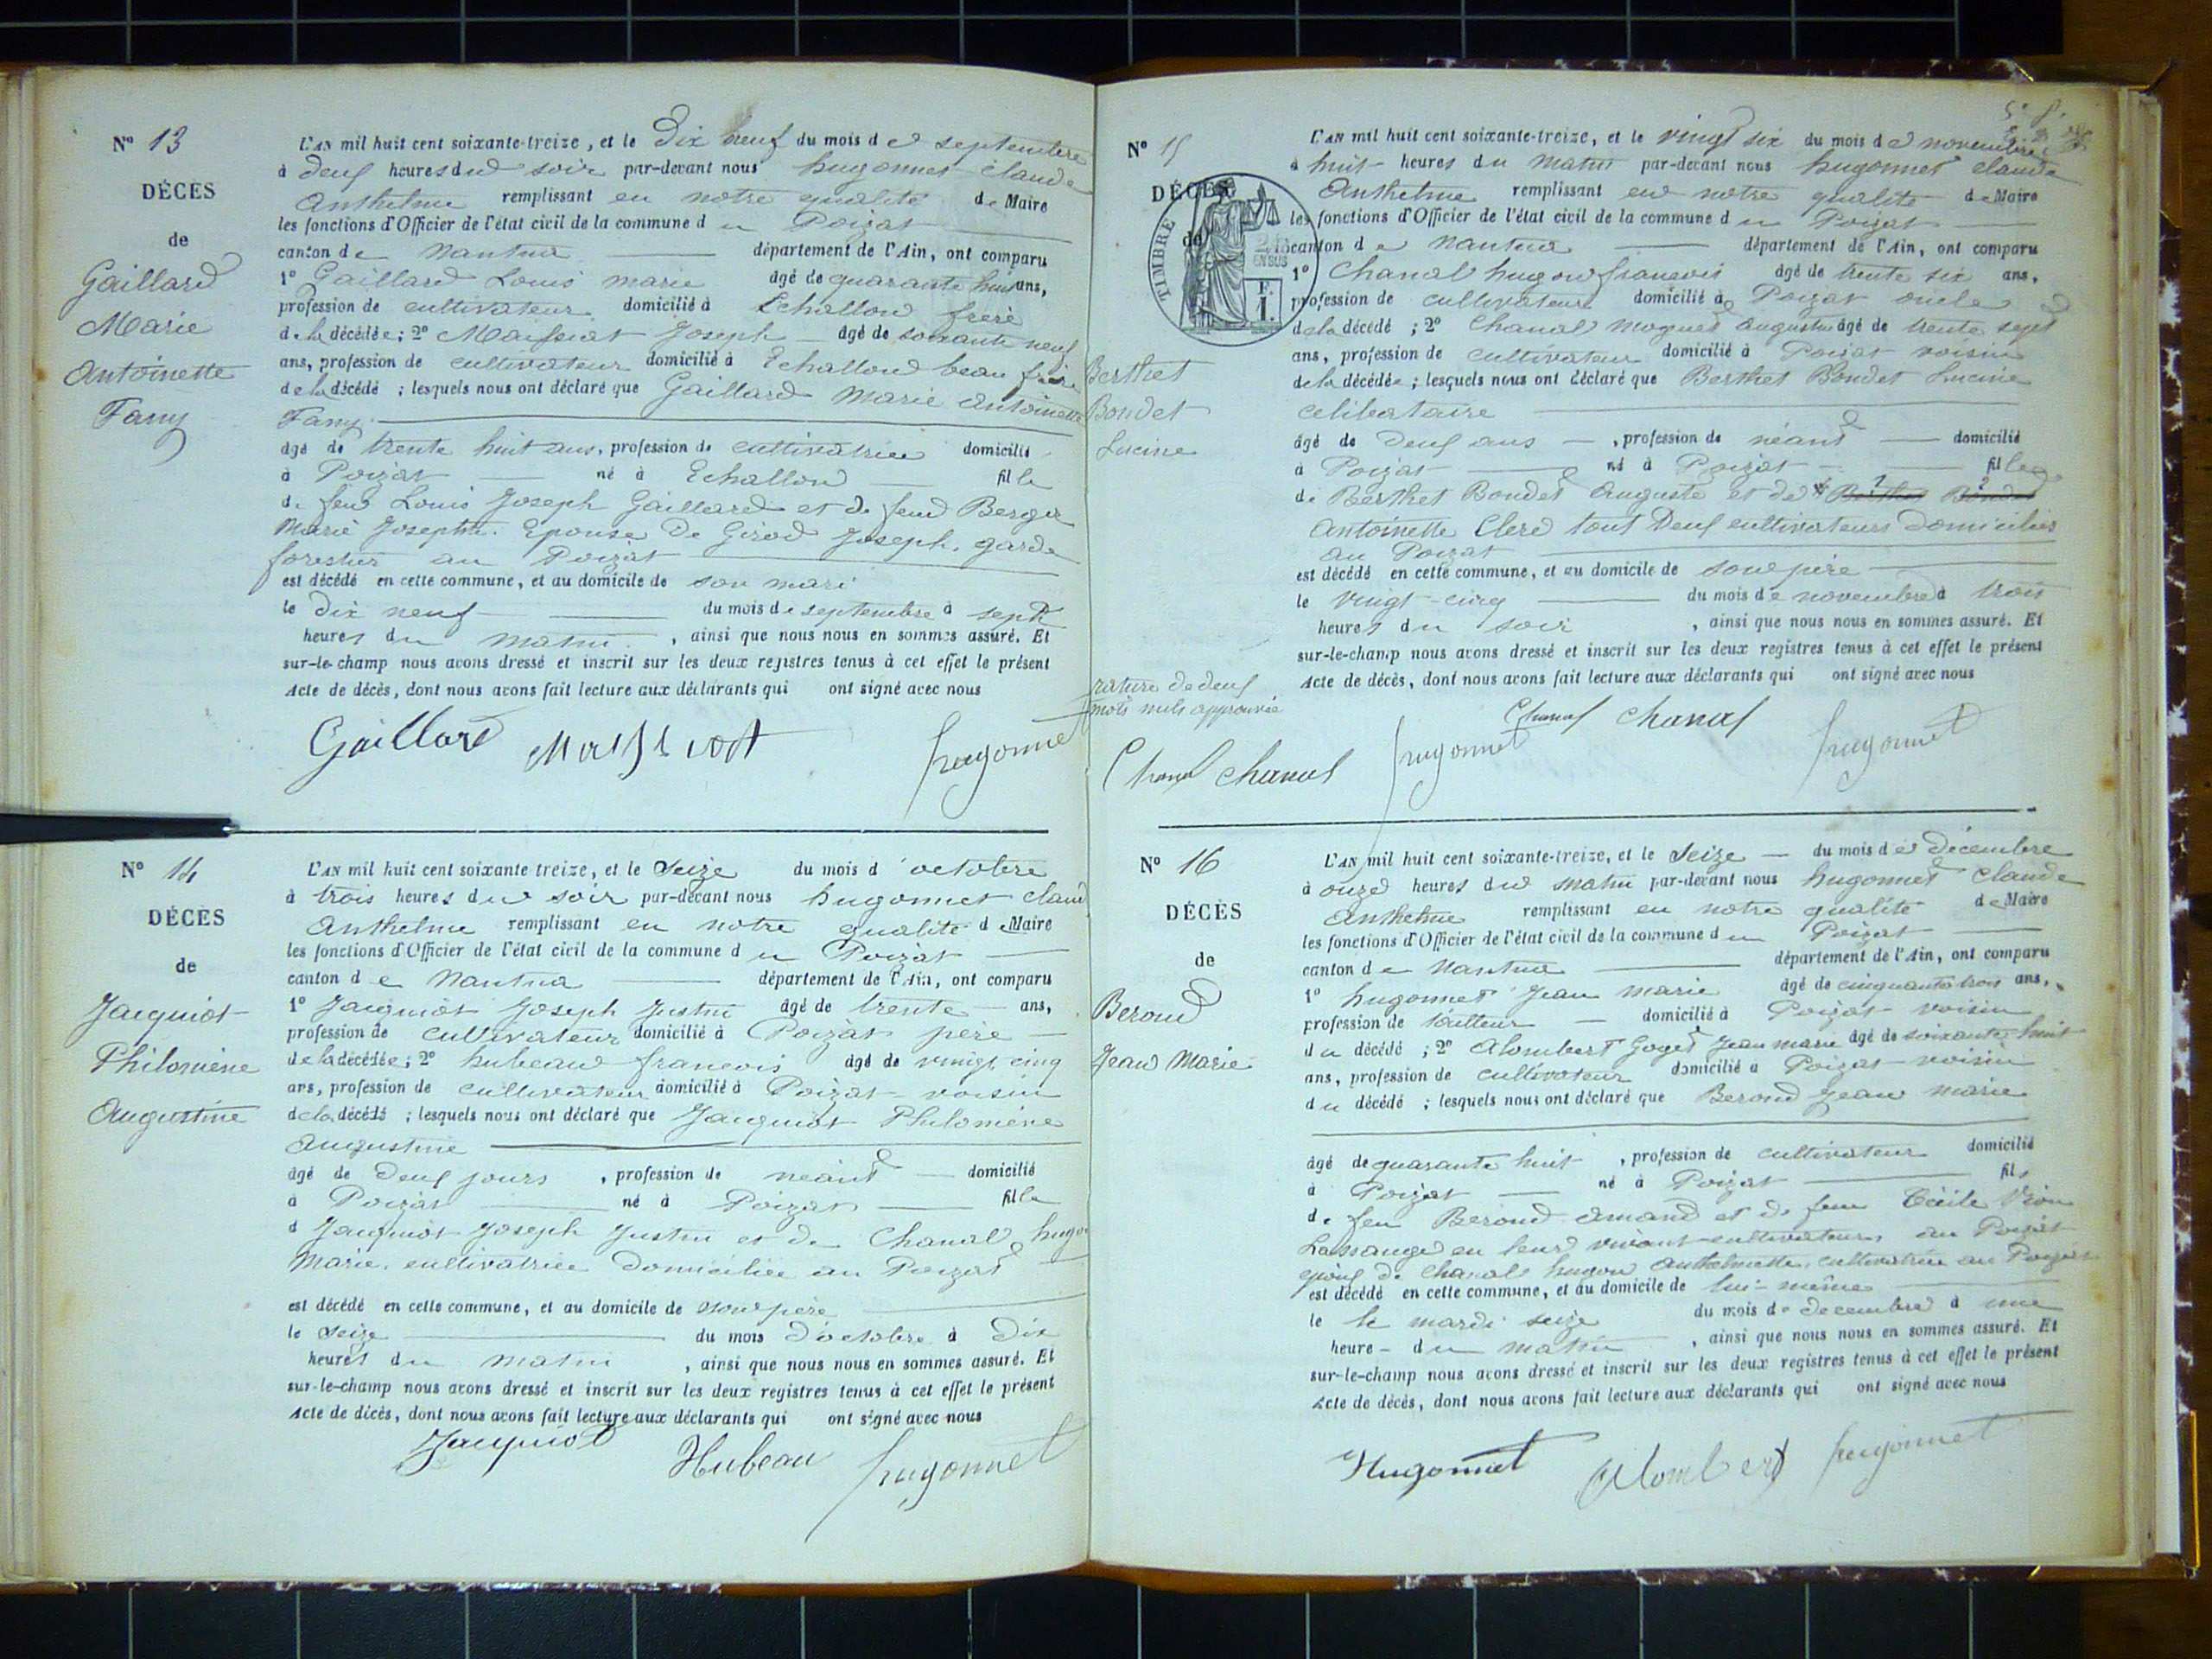 Nº 13
DÉCÈS
de
Gaillard
Marie
Antoinette
Fany
L'AN mil huit cent soixante-treize, et le Dix neuf du mois de septembre
à deux heures du soir par-devant nous hugonnet claude
Anthelme remplissant en notre qualité de Maire
les fonctions d'Officier de l'état civil de la commune du Poizat
canton de Nantua département de l'Ain, ont comparu
1º Gaillard Louis marie âgé de quarante huit ans,
profession de cultivateur domicilié à Echallon frère
de la décédée; 2º Joseph âgé de soixante neuf
ans, profession de cultivateur domicilié à Echallon beau frère
de la décédé ; lesquels nous ont déclaré que Gaillard Marie Antoinette
Fany
âgé de trente huit ans, profession de cultivatrice domicilié
à Poizat né à Echallon fille
de feu Louis Joseph Gaillard et de feue Berger
Marie Josephte. Epouse De Girod Joseph, garde
forestier au Poizat
est décédé en cette commune, et au domicile de son mari
le dix neuf du mois de septembre à sept
heures du matin, ainsi que nous nous en sommes assuré. Et
sur-le-champ nous avons dressé et inscrit sur les deux registres tenus à cet effet le présent
Acte de décès, dont nous avons fait lecture aux déclarants qui ont signé avec nous
Gaillard hugonnet
Nº 14
DÉCÈS
de
Jacquiot
Philomène
Augustine
L'AN mil huit cent soixante treize, et le Seize du mois d'octobre
à trois heures du soir par-devant nous hugonnet claud
Anthelme remplissant en notre qualité de Maire
les fonctions d'Officier de l'état civil de la commune du Poizat
canton de Nantua département de l'Ain, ont comparu
1º Jacquiot Joseph Justin âgé de trente ans,
profession de cultivateur domicilié à Poizat père
de la décédée; 2º hubeau francois âgé de vingt cinq
ans, profession de cultivateur domicilié à Poizat voisin
de la décédé ; lesquels nous ont déclaré que Jacquiot Philomène
Augustine
âgé de Deux jours, profession de néant domicilié
à Poizat né à Poizat fille
d Jacquiot Joseph Justin et de Chanal hugon
Marie, cultivatrice Domiciliée au Poizat
est décédé en cette commune, et au domicile de son père
le Seize du mois d'octobre à Dix
heures du matin, ainsi que nous nous en sommes assuré. Et
sur-le-champ nous avons dressé et inscrit sur les deux registres tenus à cet effet le présent
Acte de décès, dont nous avons fait lecture aux déclarants qui ont signé avec nous
Jacquiot Hubeau hugonnet
Nº 15
DÉCÈS
de
TIMBRE
EN SUS
F.
1.
Berthet
Bondet
Lucine
L'AN mil huit cent soixante-treize, et le vingt six du mois de novembre
à huit heures du matin par-devant nous hugonnet claude
Anthelme remplissant en notre qualité de Maire
les fonctions d'Officier de l'état civil de la commune du Poizat
canton de Nantua département de l'Ain, ont comparu
1º Chanal hugon francois âgé de trente six ans,
profession de cultivateur domicilié à Poizat oncle
de la décédé ; 2º Chanal Augustin âgé de trente sept
ans, profession de cultivateur domicilié à Poizat voisin
de la décédée ; lesquels nous ont déclaré que Berthet Bondet Lucine
célibataire
âgé de deux ans, profession de néant domicilié
à Poizat né à Poizat fille
de Berthet Bondet Auguste et de Berthet Bondet
Antoinette Clere tout Deux cultivateurs Domiciliés
au Poizat
est décédé en cette commune, et au domicile de son père
le vingt-cinq du mois de novembre à trois
heures du soir, ainsi que nous nous en sommes assuré. Et
sur-le-champ nous avons dressé et inscrit sur les deux registres tenus à cet effet le présent
Acte de décès, dont nous avons fait lecture aux déclarants qui ont signé avec nous
rature de deux
mots nuls approuvée
Chanal Chanal hugonnet
Chanal Chanal hugonnet
Nº 16
DÉCÈS
de
Beroud
Jean Marie
L'AN mil huit cent soixante-treize, et le Seize du mois de Décembre
à onze heures du matin par-devant nous hugonnet Claude
Anthelme remplissant en notre qualité de Maire
les fonctions d'Officier de l'état civil de la commune du Poizat
canton de Nantua département de l'Ain, ont comparu
1º hugonnet Jean marie âgé de cinquante trois ans,
profession de domicilié à Poizat voisin
du décédé ; 2º Alombert Goget Jean marie âgé de soixante huit
ans, profession de cultivateur domicilié à Poizat voisin
du décédé ; lesquels nous ont déclaré que Beroud Jean marie
âgé de quarante huit, profession de cultivateur domicilié
à Poizat né à Poizat fils
de feu Beroud Amand et de feue Cécile
en leur vivant cultivateurs au Poizat
époux de Chanal hugon Anthelmette, cultivatrice au Poizat
est décédé en cette commune, et au domicile de lui-même
le le mardi seize du mois de decembre à une
heure du matin, ainsi que nous nous en sommes assuré. Et
sur-le-champ nous avons dressé et inscrit sur les deux registres tenus à cet effet le présent
Acte de décès, dont nous avons fait lecture aux déclarants qui ont signé avec nous
Hugonnet Alombert hugonnet